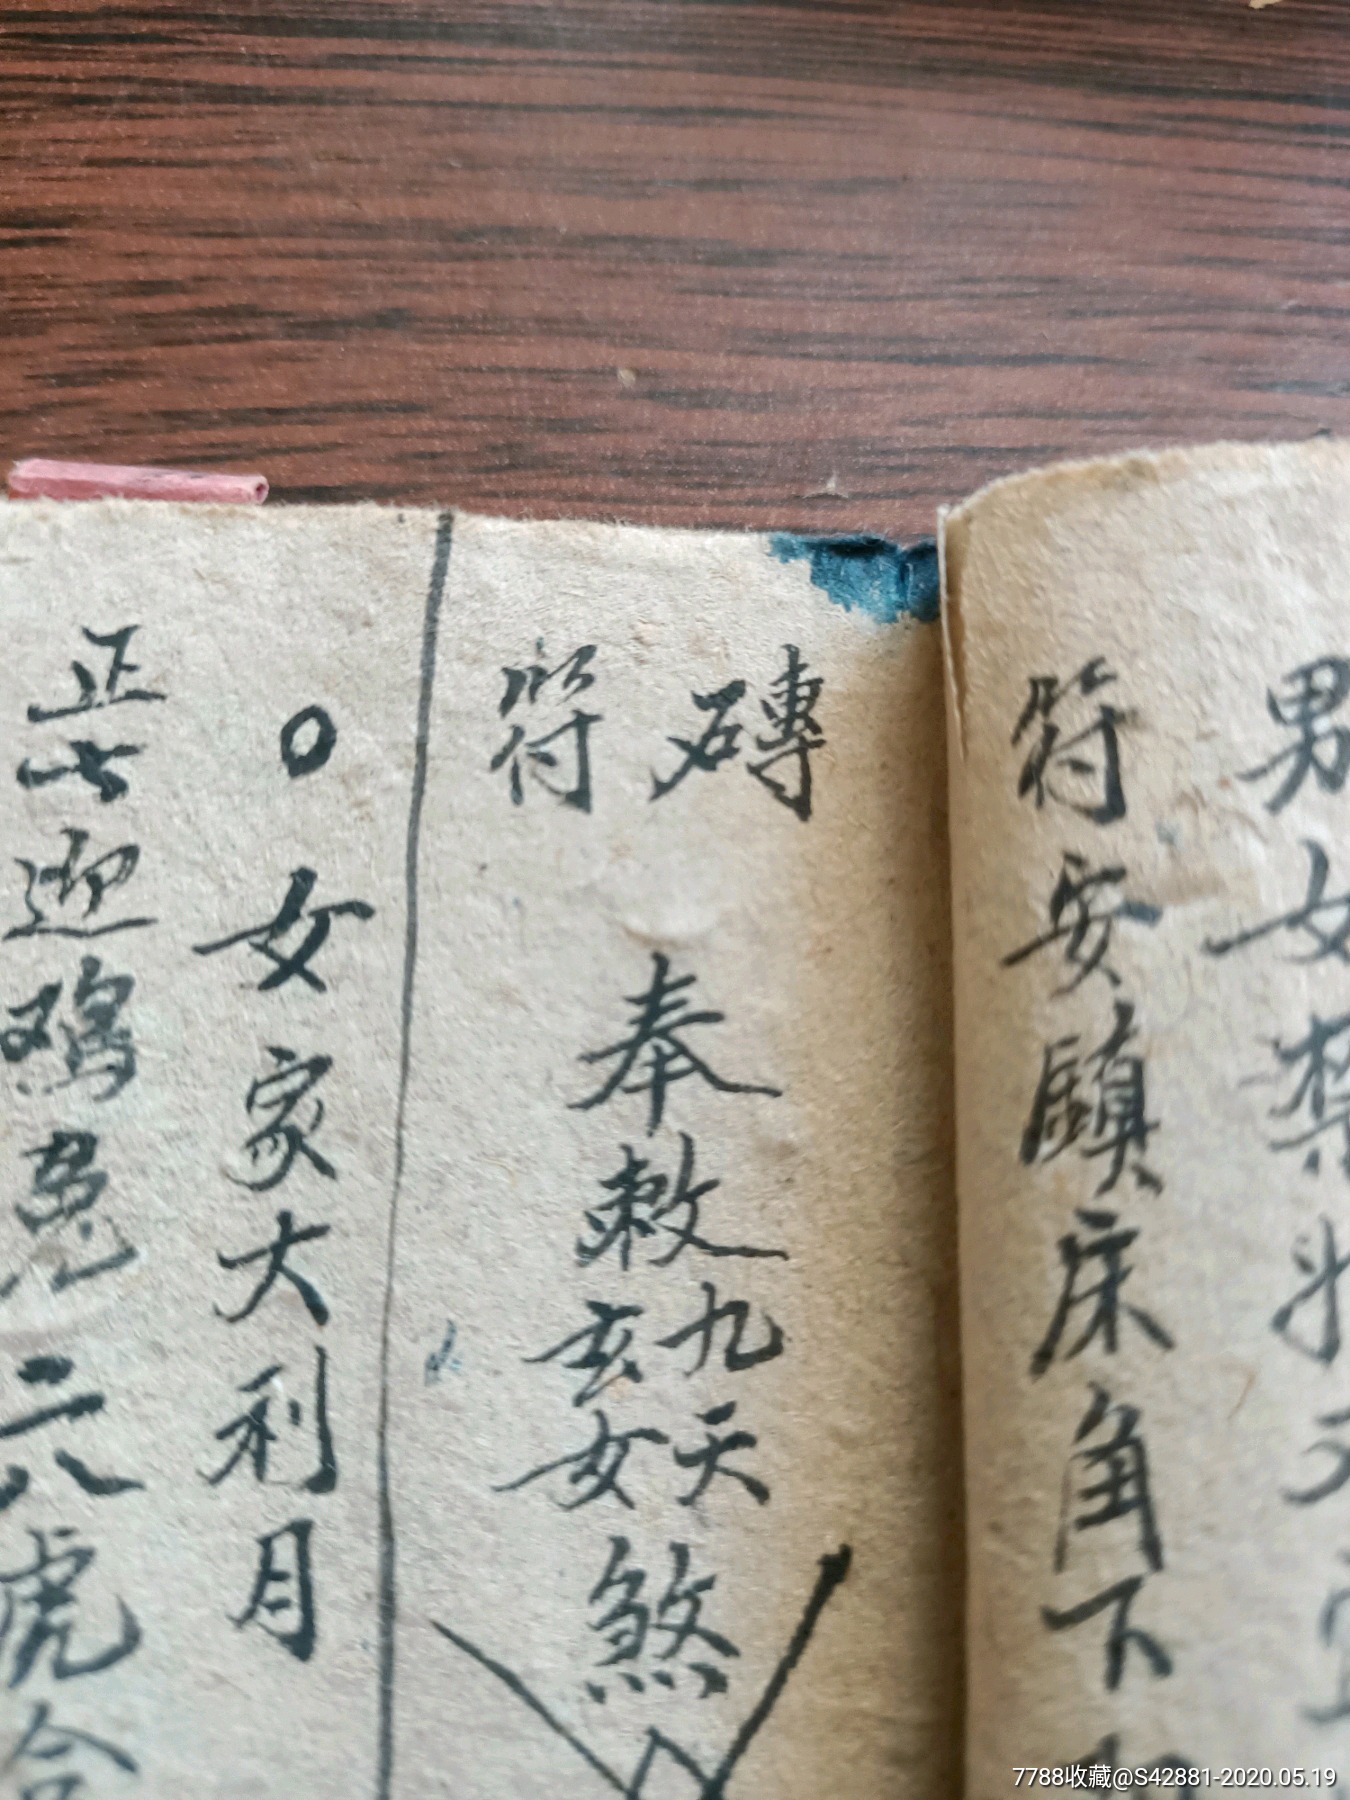 男女禁
符安鎮床角下
磚
符
奉敕九天玄女煞
〇女家大利月
正七迎鸡兔二八虎合
7788收藏@S42881-2020.05.19